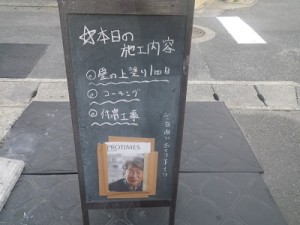 ☆本日の
施工内容
①壁の上塗り1回目
②コーキング
③付帯工事
PROTIMES